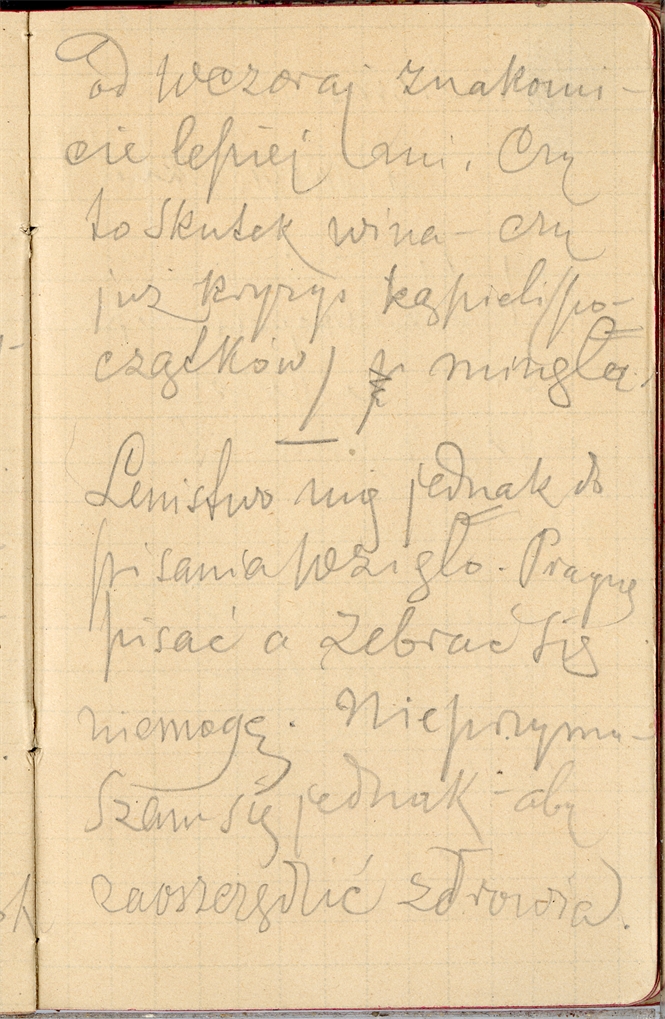 od wczoraj znakomi-
cie lepiej mi. Czy
to skutek wina - czy
już kryzys kąpieli (po-
czątków) minęła.
Lenistwo mię jednak do
pisania wzięło. Pragnę
pisać a zebrać się
niemogę. Nieprzymu-
szam się jednak - aby
zaoszczędzić zdrowia.